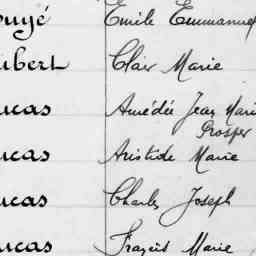 ouyé Emile Emmanuel
ibert Clair Marie
ucas Amédée Jean Marie
Prosper
ucas Aristide Marie
ucas Charles Joseph
ucas Marie